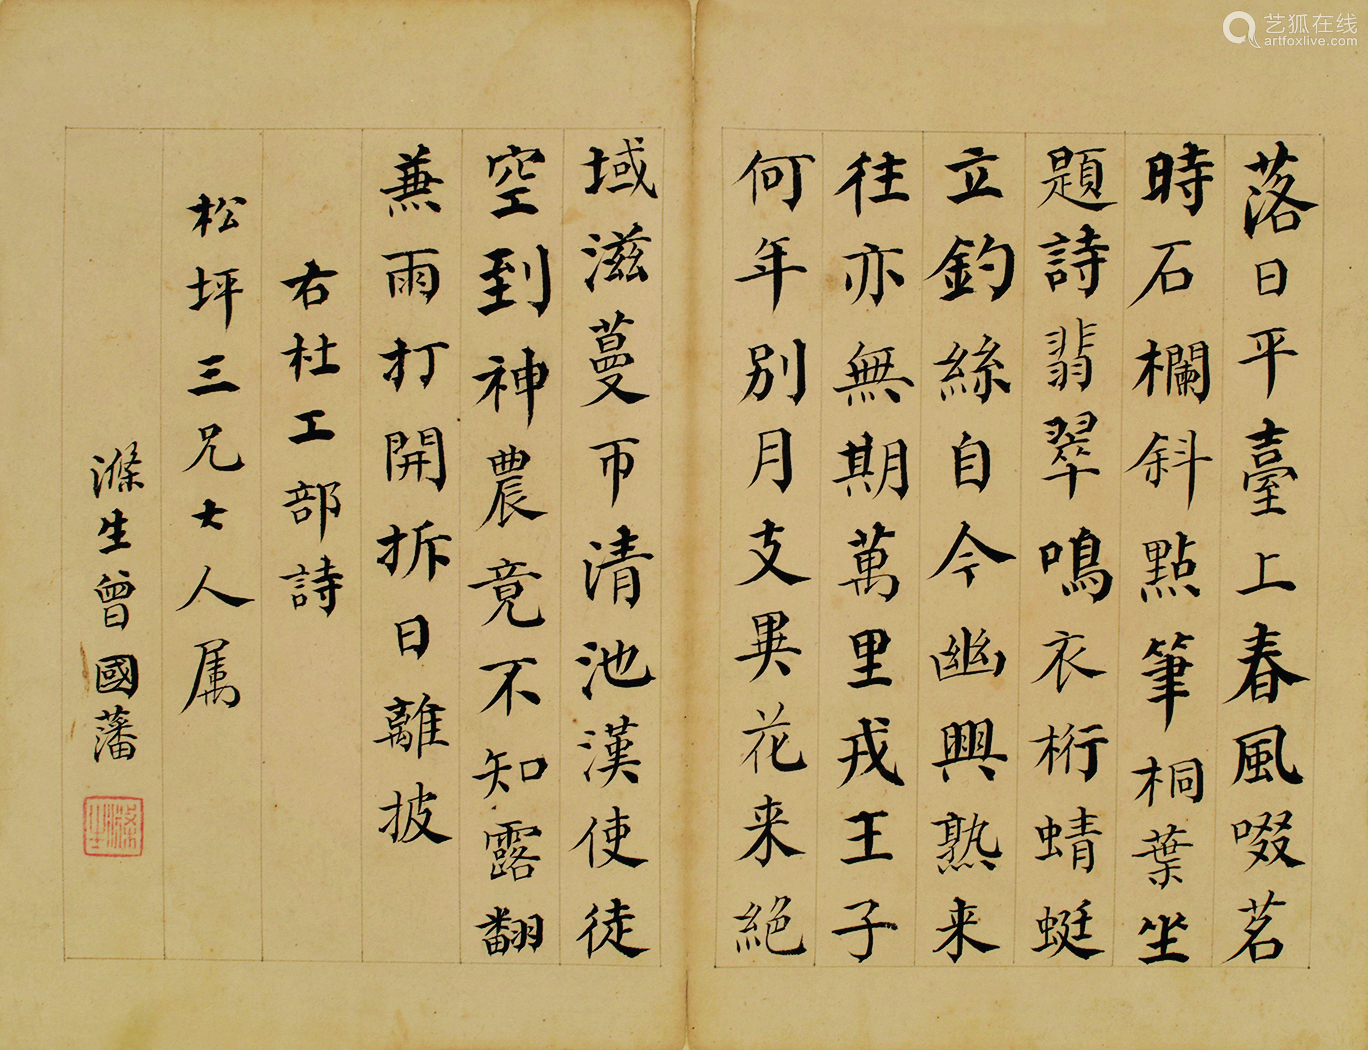 落日平臺上春風啜茗
時石欄斜點筆桐葉坐
題詩翡翠鳴衣桁蜻蜓
立釣絲自今幽興熟来
往亦無期萬里戎王子
何年別月支異花来絕
域滋蔓帀清池漢使徒
空到神農竟不知露翻
兼雨打開拆日離披
右杜工部詩
松坪三兄大人属
滌生曾國藩
滌生
艺狐在线
artfoxlive.com